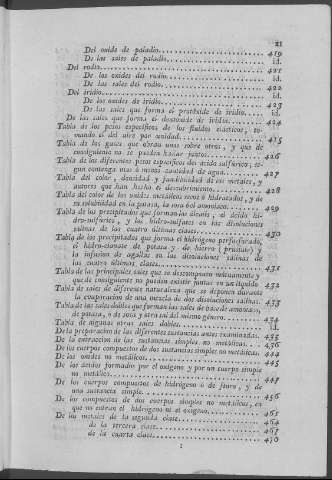 21
Del oxide de paladio........ 419
De las sales de paladio........ id.
Del rodio........ 421
De los oxides del rodio........ id.
De las sales del rodio........ 422
Del iridio........ id.
De los oxides de iridio........ 423
De las sales que forma el protoxide de iridio..... id.
De las sales que forma el deutoxide de iridio..... 424
Tabla de los pesos específicos de los fluidos elásticos, tomando el del aire por unidad........ 425
Tabla de los gases que obran unos sobre otros, y que de
consiguiente no se pueden hallar juntos........ 426
Tabla de los diferentes pesos específicos del ácido sulfúrico, segun
contenga mas ó menos cantidad de agua........ 427
Tabla del color, densidad y fusibilidad de los metales, y
autores que han hecho el descubrimiento........ 428
Tabla del color de los oxides metálicos secos ó hidratados, y de
su solubilidad en la potasa, la sosa ó el amoniaco...... 429
Tabla de los precipitados que forman los álcalis, el ácido hidro-sulfúrico,
y los hidro-sulfates en las disoluciones
salinas de las cuatro últimas clases........ 430
Tabla de los precipitados que forma el hidrógeno perfosfurado,
el hidro-cianate de potasa y de hierro (prusiate) y
la infusion de agallas en las disoluciones salinas de
las cuatro últimas clases........ 431
Tabla de las principales sales que se descomponen mutuamente y
que de consiguiente no pueden existir juntas en un líquido. 432
Tabla de sales de diferente naturaleza que se deponen durante
la evaporacion de una mezcla de dos disoluciones salinas. 433
Tabla de las sales dobles que forman las sales de base de amoniaco,
de potasa, ó de sosa y otra sal del mismo género... 434
Tabla de algunas otras sales dobles........ id.
De la preparacion de las diferentes sustancias antes examinadas. 435
De la extraccion de las sustancias simples no metálicas. 436
De los cuerpos compuestos de dos sustancias simples no metálicas. 444
De los oxides no metálicos........ 445
De los ácidos formados por el oxígeno y por un cuerpo simple
no metálico........ 447
De los cuerpos compuestos de hidrógeno ó de ftoro, y de
una sustancia simple........ 456
De los compuestos de dos cuerpos simples no metálicos, en
que no entran el hidrógeno ni el oxígeno........ 463
De los metales de la segunda clase........ 464
de la tercera clase........ 465
de la cuarta clase........ 470